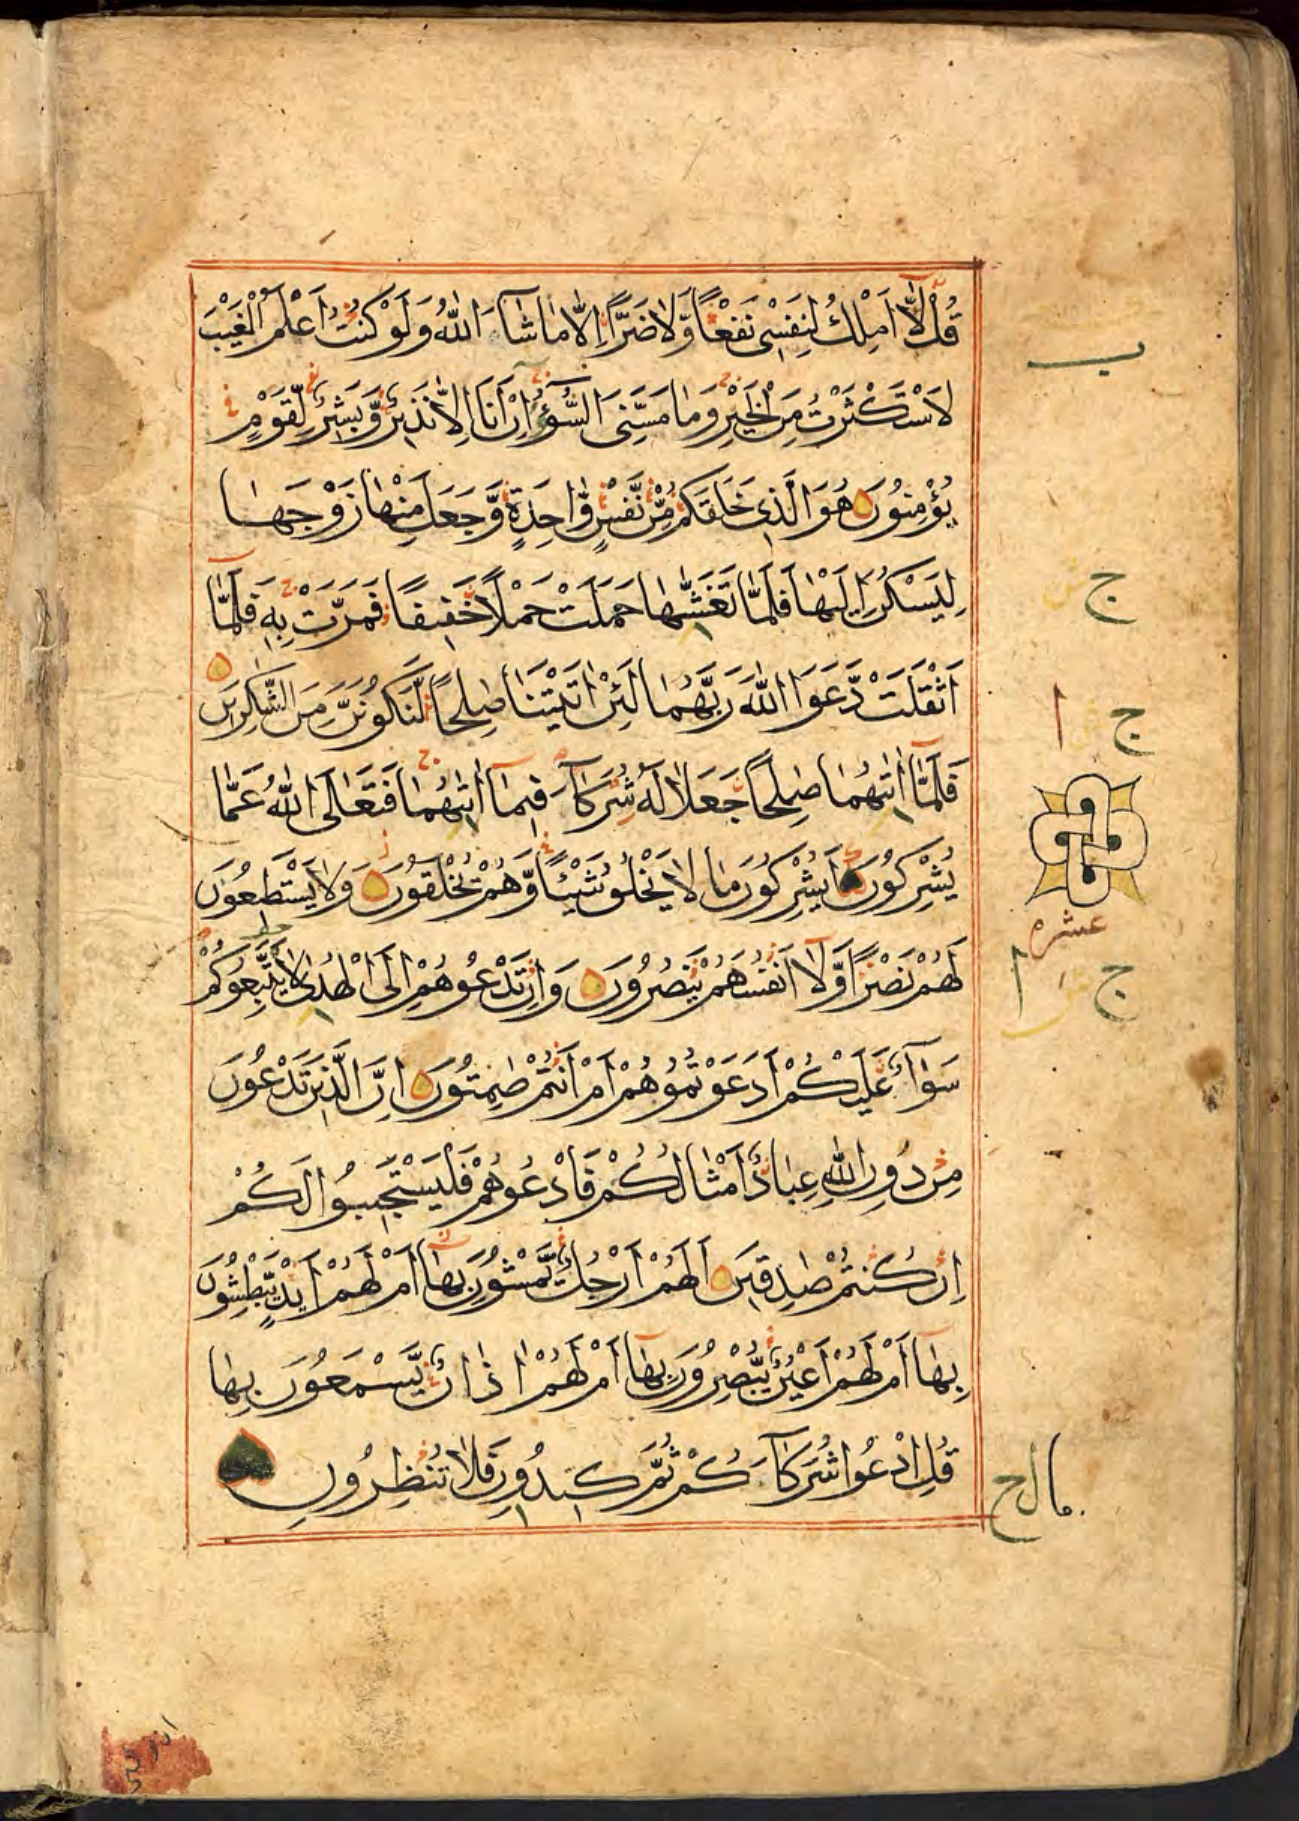 قُلْ لَّآ اَمْلِكُ لِنَفْسِىْ نَفْعًا وَّلَا ضَرًّا اِلَّا مَا شَآءَ اللّٰهُ وَلَوْ كُنْتُ اَعْلَمُ الْغَيْبَ
ب
لَاسْتَكْثَرْتُ مِنَ الْخَيْرِ وَمَا مَسَّنِىَ السُّوْٓءُ اِنْ اَنَا اِلَّا نَذِيْرٌ وَّبَشِيْرٌ لِّقَوْمٍ
يُؤْمِنُوْنَ هُوَ الَّذِىْ خَلَقَكُمْ مِّنْ نَّفْسٍ وَّاحِدَةٍ وَّجَعَلَ مِنْهَا زَوْجَهَا
لِيَسْكُنَ اِلَيْهَا فَلَمَّا تَغَشّٰهَا حَمَلَتْ حَمْلًا خَفِيْفًا فَمَرَّتْ بِهٖ فَلَمَّآ
ج
اَثْقَلَتْ دَّعَوَا اللّٰهَ رَبَّهُمَا لَئِنْ اٰتَيْتَنَا صٰلِحًا لَّنَكُوْنَنَّ مِنَ الشّٰكِرِيْنَ
ج
فَلَمَّآ اٰتٰىهُمَا صٰلِحًا جَعَلَا لَهٗ شُرَكَآءَ فِيْمَآ اٰتٰىهُمَا فَتَعَالَى اللّٰهُ عَمَّا
يُشْرِكُوْنَ اَيُشْرِكُوْنَ مَا لَا يَخْلُقُ شَيْئًا وَّهُمْ يُخْلَقُوْنَ وَلَا يَسْتَطِيْعُوْنَ
عشره
لَهُمْ نَصْرًا وَّلَآ اَنْفُسَهُمْ يَنْصُرُوْنَ وَاِنْ تَدْعُوْهُمْ اِلَى الْهُدٰى لَا يَتَّبِعُوْكُمْ
ج
سَوَآءٌ عَلَيْكُمْ اَدَعَوْتُمُوْهُمْ اَمْ اَنْتُمْ صٰمِتُوْنَ اِنَّ الَّذِيْنَ تَدْعُوْنَ
مِنْ دُوْنِ اللّٰهِ عِبَادٌ اَمْثَالُكُمْ فَادْعُوْهُمْ فَلْيَسْتَجِيْبُوْا لَكُمْ
اِنْ كُنْتُمْ صٰدِقِيْنَ اَلَهُمْ اَرْجُلٌ يَّمْشُوْنَ بِهَآ اَمْ لَهُمْ اَيْدٍ يَّبْطِشُوْنَ
بِهَآ اَمْ لَهُمْ اَعْيُنٌ يُّبْصِرُوْنَ بِهَآ اَمْ لَهُمْ اٰذَانٌ يَّسْمَعُوْنَ بِهَا
قُلِ ادْعُوْا شُرَكَآءَكُمْ ثُمَّ كِيْدُوْنِ فَلَا تُنْظِرُوْنِ